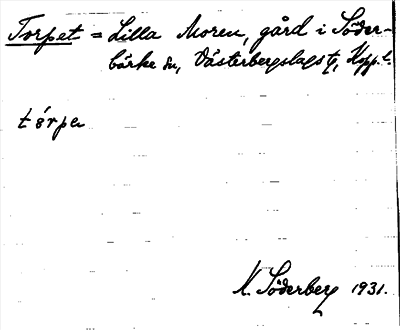 Torpet = Lilla Moren, gård i Söder-
bärke sn, Västerbergslags tg, Kopp. l.
tórpa
N. Söderberg 1931.